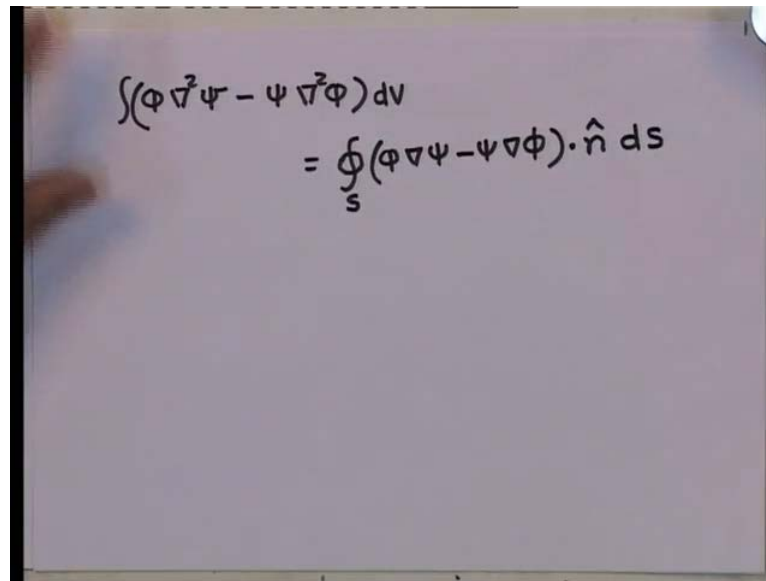 ∫(φ∇²ψ - ψ∇²φ)dV
= ∮(φ∇ψ-ψ∇φ)·n̂ dS
S